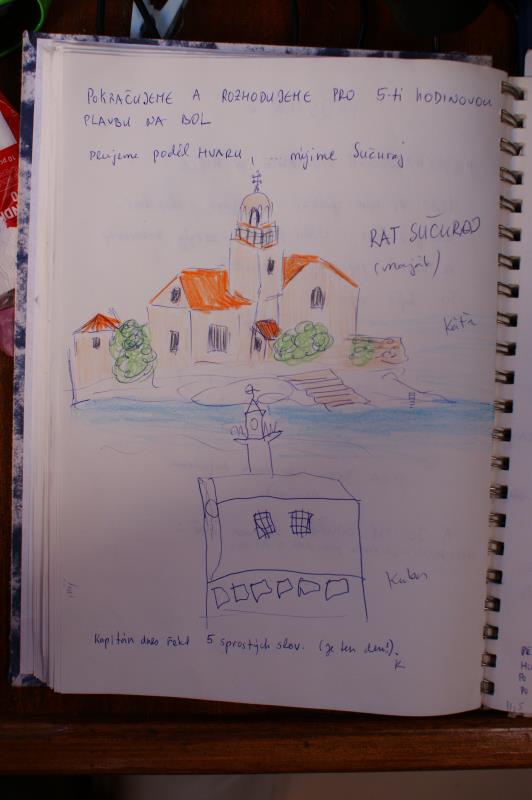 POKRAČUJEME A ROZHODUJEME PRO 5-ti HODINOVOU
PLAVBU NA BOL
PLUJEME podél HVARU, ... míjíme Sućuraj
RAT SUČURAJ
(maják)
Káťa
Kuba
Kapitán dnes řekl 5 sprostých slov. (je ten den!).
K